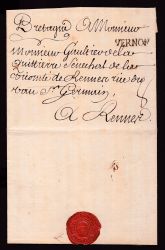 Bretagne A Monsieur
VERNON
Monsieur Gaultier de la
Guittiere Senechal de la
Vicomté de Rennes rue du
vau St Germain,
A Rennes